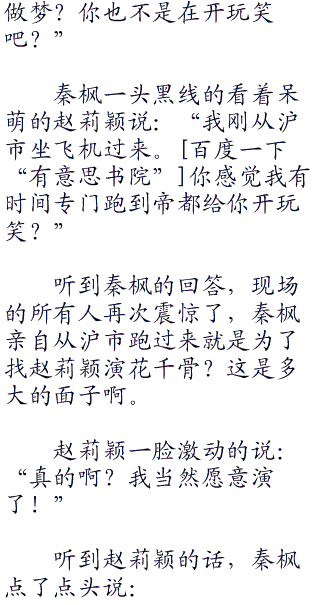 做梦？你也不是在开玩笑
吧？”
秦枫一头黑线的看着呆
萌的赵莉颖说：“我刚从沪
市坐飞机过来。[百度一下
“有意思书院”]你感觉我有
时间专门跑到帝都给你开玩
笑？”
听到秦枫的回答，现场
的所有人再次震惊了，秦枫
亲自从沪市跑过来就是为了
找赵莉颖演花千骨？这是多
大的面子啊。
赵莉颖一脸激动的说：
“真的啊？我当然愿意演
了！”
听到赵莉颖的话，秦枫
点了点头说：